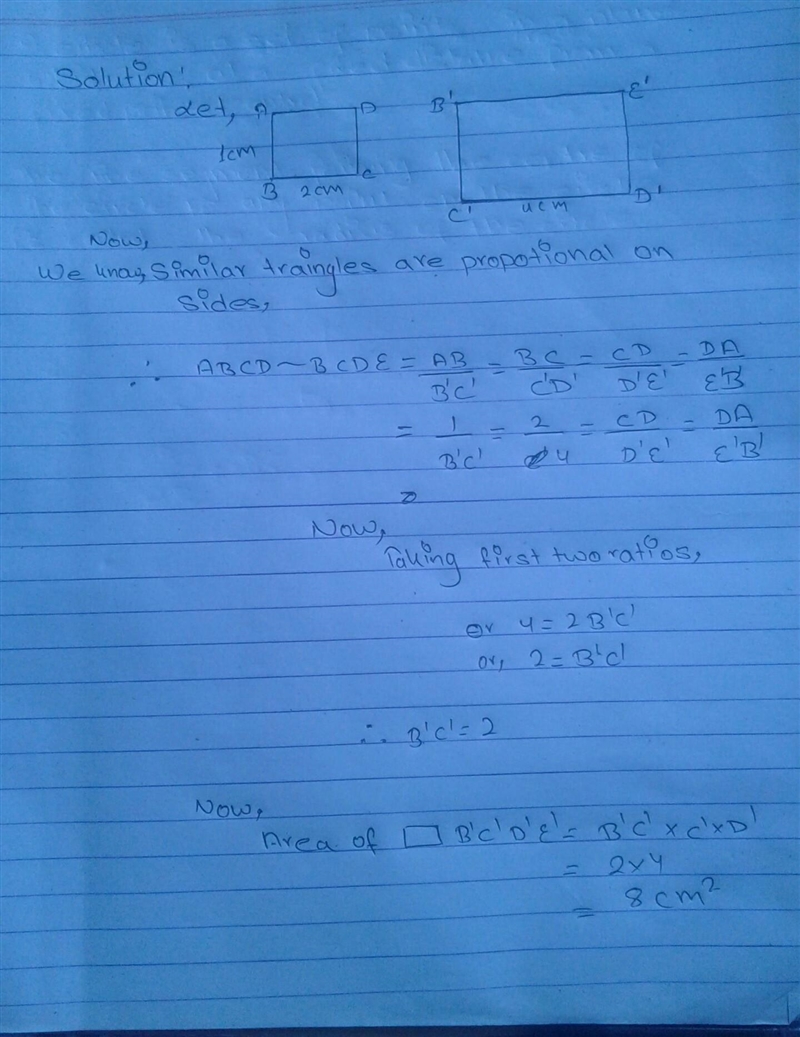 Solution:
Let, A D B' E'
1cm
B 2cm C C' 4cm D'
Now,
We know, Similar traingles are propotional on
sides,
∴ ABCD ~ BCDE = AB/B'C' = BC/C'D' = CD/D'E' = DA/E'B'
= 1/B'C' = 2/4 = CD/D'E' = DA/E'B'
Now,
Taking first two ratios,
or 4 = 2 B'C'
or, 2 = B'C'
∴ B'C' = 2
Now,
Area of □ B'C'D'E' = B'C' × C' × D'
= 2×4
= 8cm²